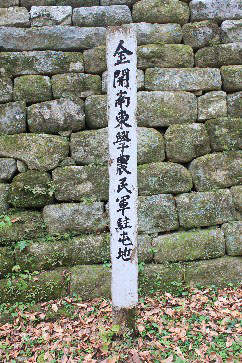 金開南東學農民軍駐屯地